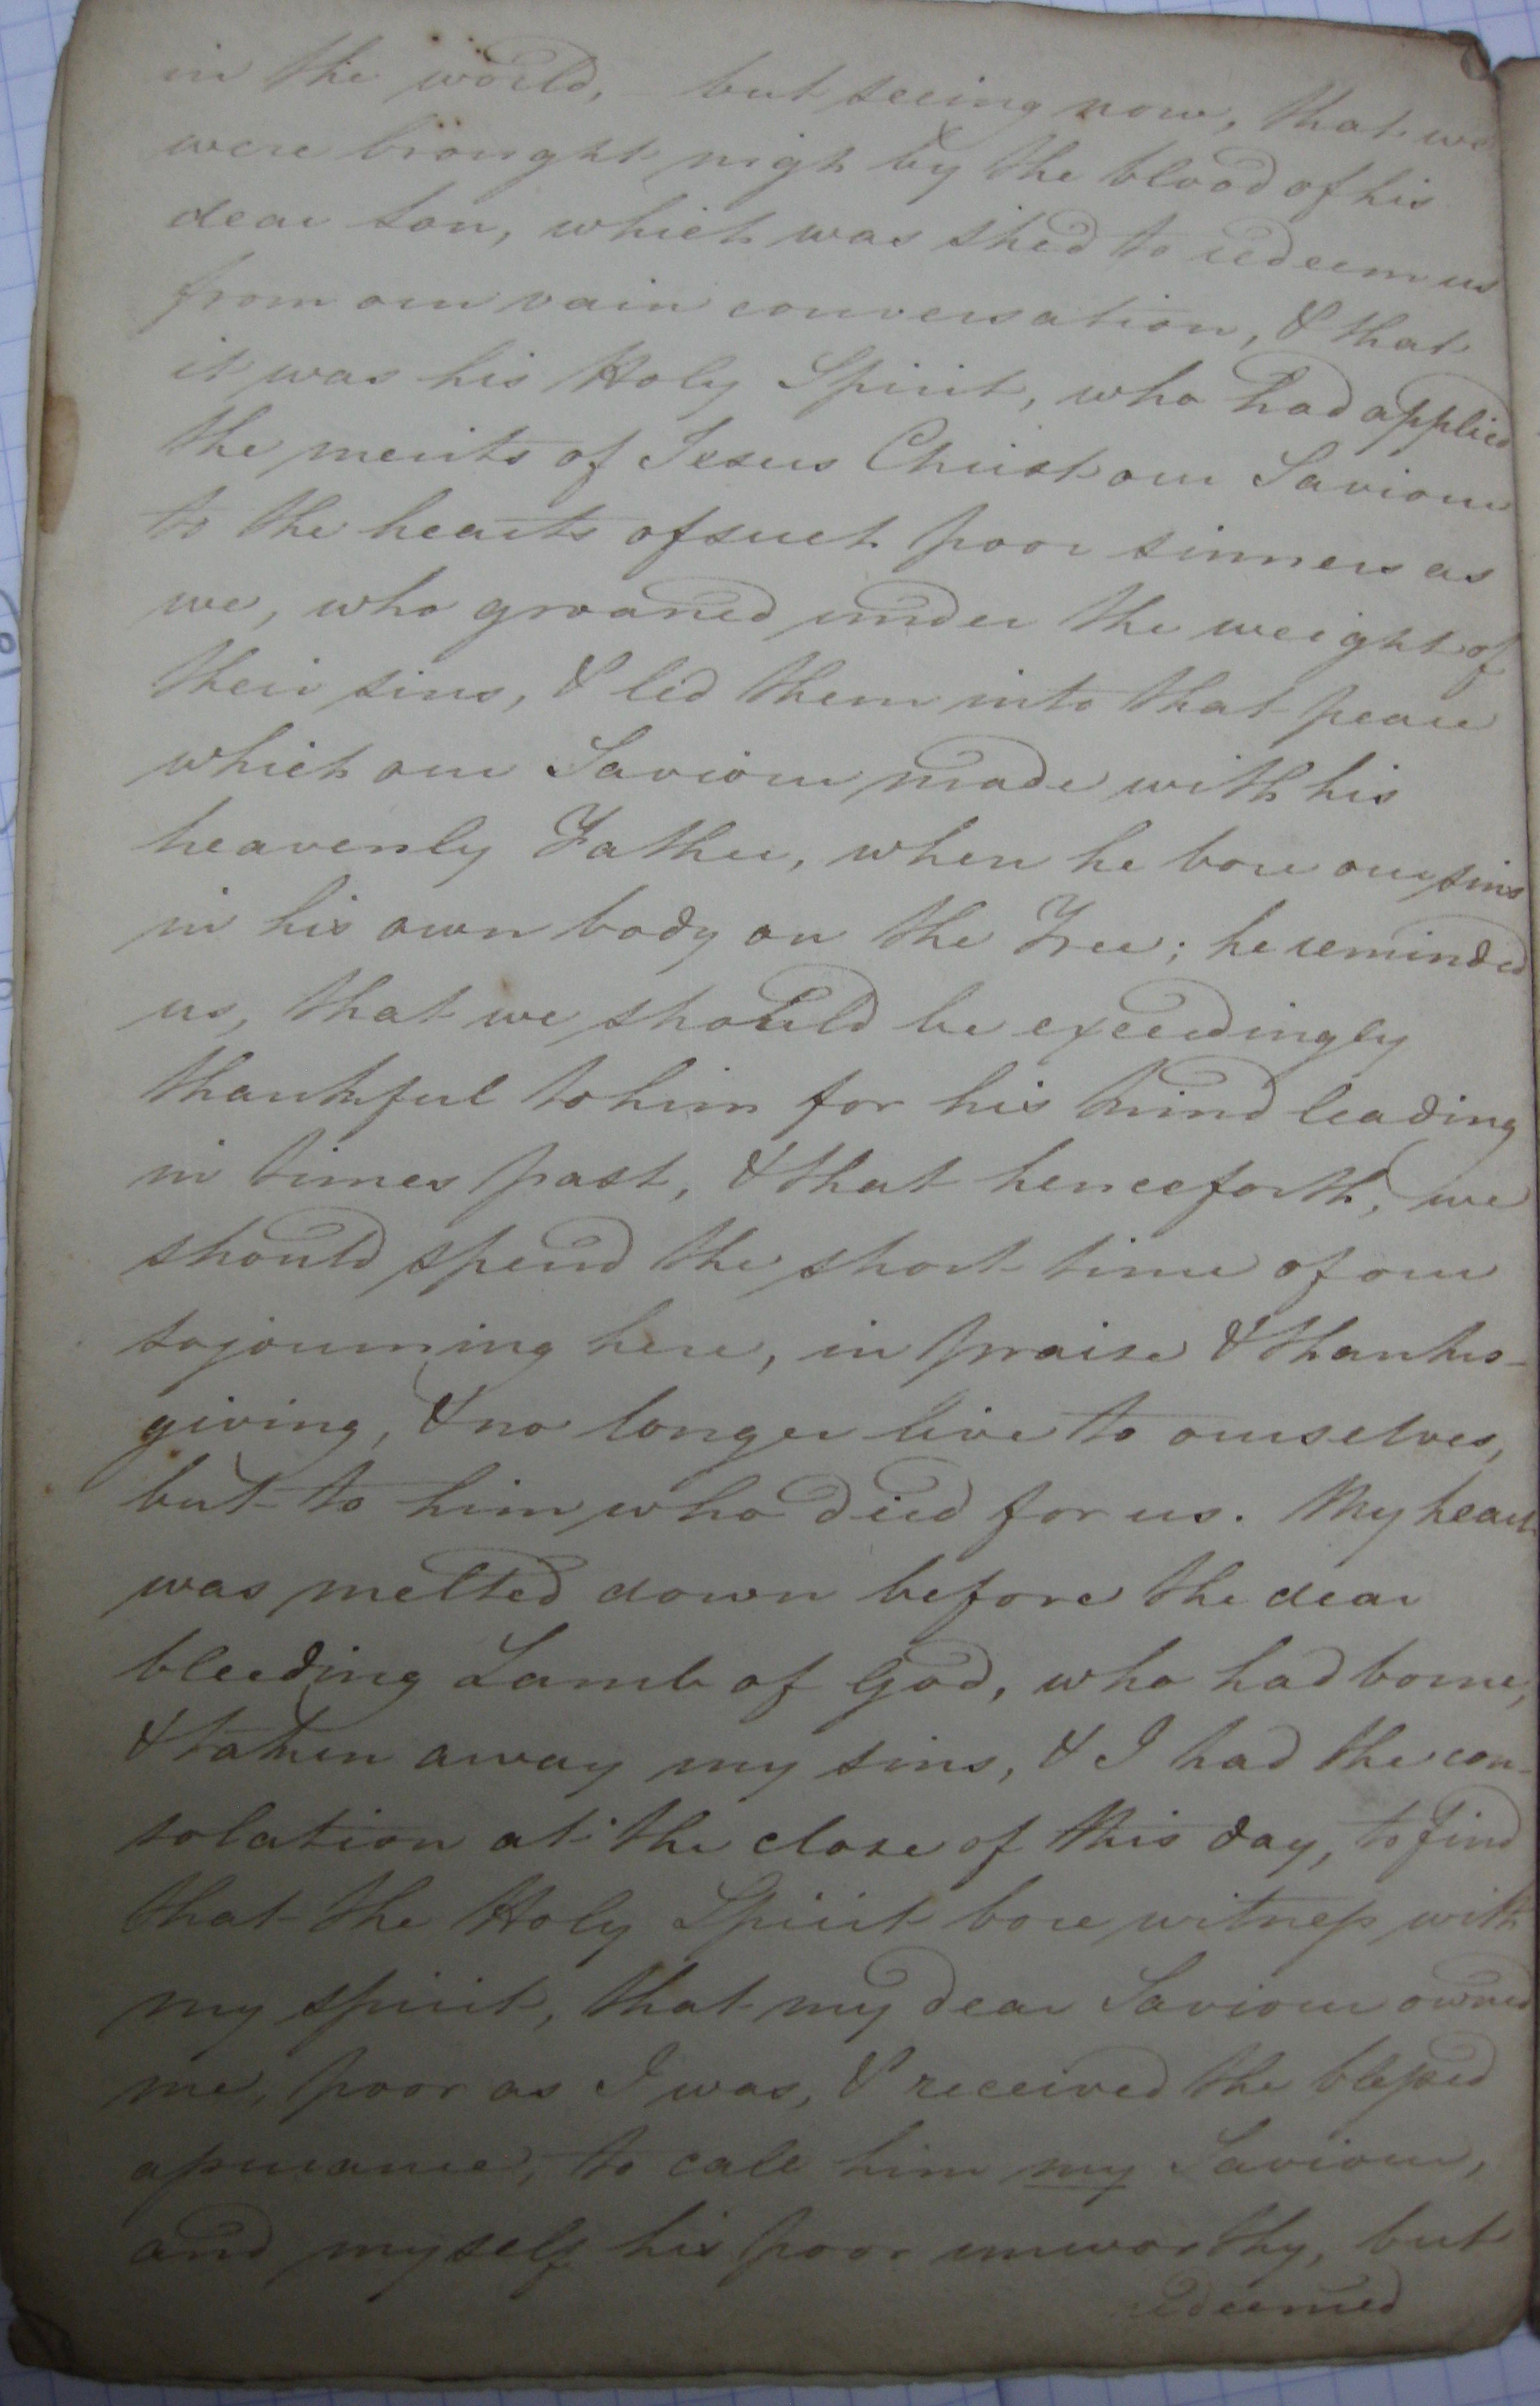 in the world, - but seeing now, that we
were brought nigh by the blood of his
dear son, which was shed to redeem us
from our vain conversation, & that
it was his Holy Spirit, who had applied
the merits of Jesus Christ our Saviour
to the hearts of such poor sinners as
we, who groaned under the weight of
their sins, & led them into that peace
which our Saviour made with his
heavenly Father, when he bore our sins
in his own body on the Tree; he reminded
us, that we should be exceedingly
thankful to him for his kind leading
in times past, & that henceforth, we
should spend the short time of our
sojourning here, in praise & thanks-
giving, & no longer live to ourselves,
but to him who died for us. My heart
was melted down before the dear
bleeding Lamb of God, who had borne,
& taken away my sins, & I had the con-
solation at the close of this day, to find
that the Holy Spirit bore witness with
my spirit, that my dear Saviour owned
me, poor as I was, & received the blessed
assurance, to call him my Saviour,
and myself his poor unworthy, but
redeemed